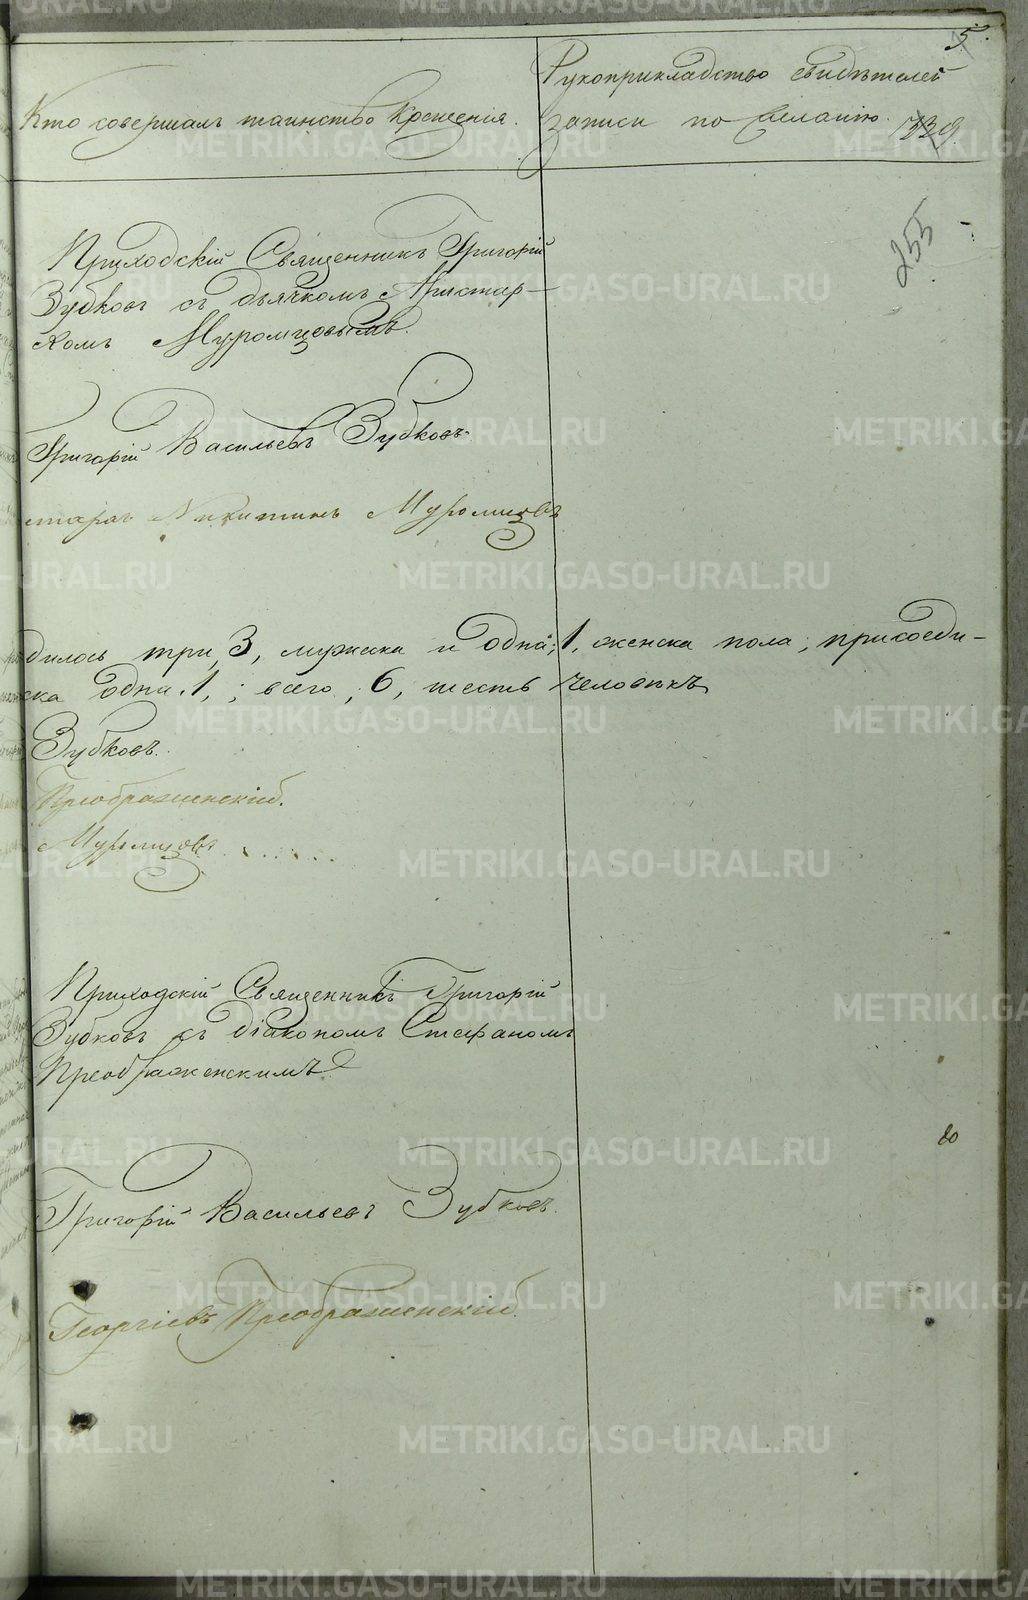 5.
Рукоприкладство свидѣтелей
Кто совершалъ таинство Крещенія.
записи по желанію.
339
255
Приходскій Священникъ Григорій
Зубковъ съ дьячкомъ Аристар-
хомъ Муромцовымъ.
Григорій Васильевъ Зубковъ
стархъ Никитинъ Муромцовъ
дилось три, 3, мужска и одна, 1, женска пола; присоеди-
ска одна, 1,; всего, 6, шесть человѣкъ
Зубковъ.
Преображенскій.
Муромцовъ
Приходскій Священникъ Григорій
Зубковъ съ діакономъ Стефаномъ
Преображенскимъ
Григорій Васильевъ Зубковъ.
Георгіевъ Преображенскій.
METRIKI.GASO-URAL.RU